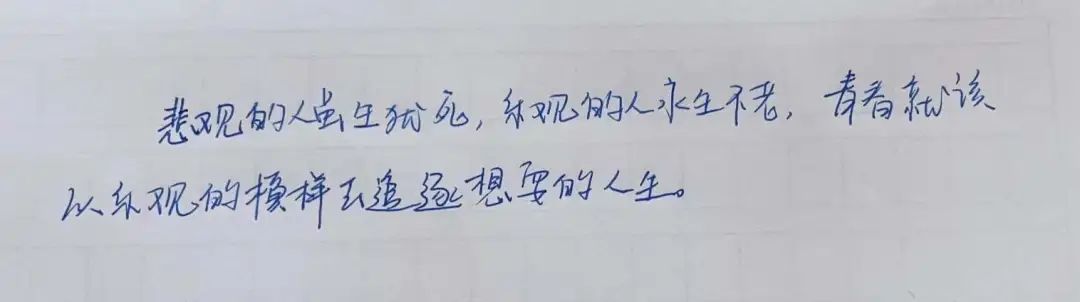 悲观的人虽生犹死,乐观的人永生不老,青春就该
以乐观的模样去追逐想要的人生。